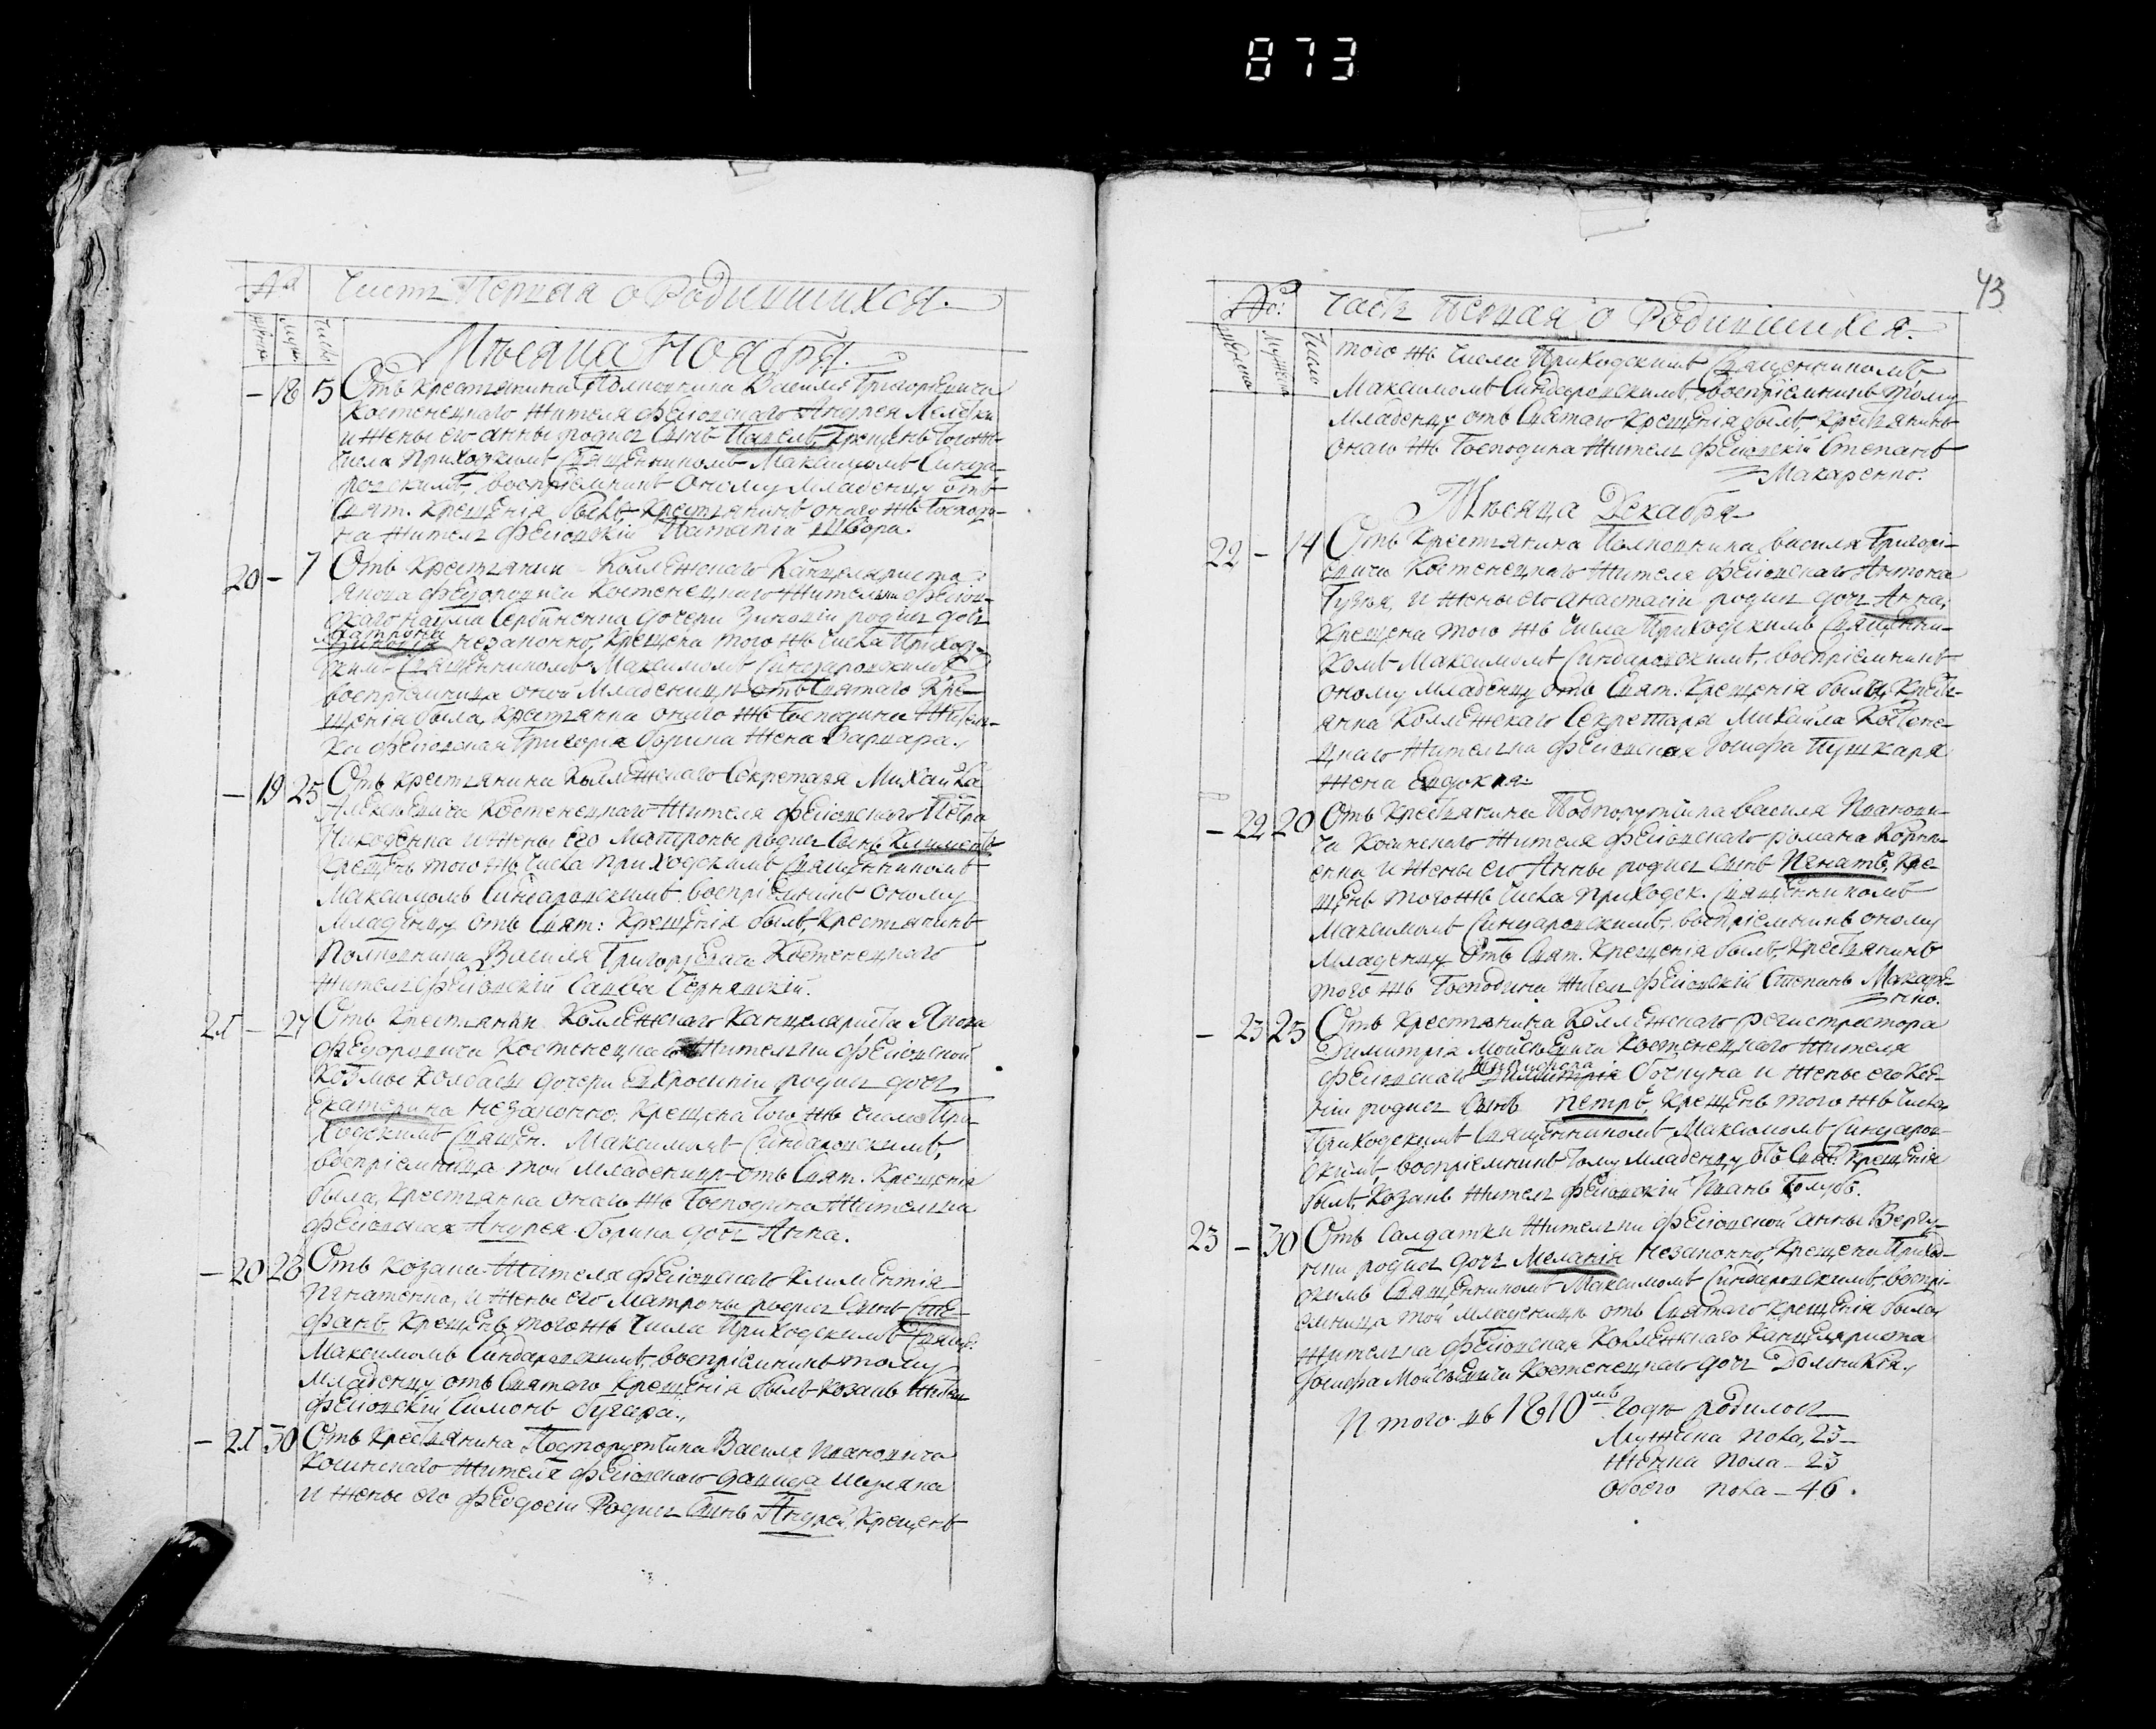 873
№ Часть Первая о Родившихся.
Женск. Муж. Число
Месяца Ноября.
– 18 5 Отъ Крестьянина Полковника Василя Григориевича
Костенецкаго Жителя фесювскаго Андрея
и Жены его анны родися Сынъ Павелъ, Крещенъ того Ж
числа Приходскимъ Священникомъ Максимомъ Синда-
ровскимъ, воспріемникъ оному младенцу отъ
Свят. Крещенія былъ, Крестьянинъ онаго Жъ Господи-
на Житель фесювскій Игнатій
20 – 7 Отъ Крестьянки Коллежскаго Канцеляриста
Якова Федоровича Костенецкаго Жителки фесюв-
скаго Наума дочери Зиновіи родися дочь
Матрона
Зиновія незаконно, Крещена того Жъ Числа Приход-
скимъ Священникомъ Максимомъ Синдаровскимъ
воспріемница оной Младеници отъ Святаго Кре-
щенія была, Крестьянка онаго Жъ Господина Жител-
ка фесювская Григорія Борина Жена Варвара.
– 19 25 Отъ Крестьянина Коллежскаго Секретаря Михайла
Алексеевича Костенецкаго Жителя фесювскаго Петра
и Жены Его Матроны родися Сынъ Климентъ
Крещенъ того Жъ Числа приходскимъ Священникомъ
Максимомъ Синдаровскимъ воспріемникъ оному
Младенцу отъ Свят: Крещенія былъ, Крестьянинъ
Полковника Василя Григориевича Костенецкаго
Житель фесювскій Савва Чернявскій.
21 – 27 Отъ Крестьянки Коллежскаго Канцеляриста Якова
федоровича Костенецкаго Жителки фесювской
Козмы дочери Евфросиніи родися дочь
Екатерина незаконно. Крещена того Жъ числа При-
ходскимъ Священ. Максимомъ Синдаровскимъ,
воспріемница той младеници отъ Свят. Крещенія
была, Крестьянка онаго Жъ Господина Жителка
фесювская Андрея Борина дочь Анна.
– 20 28 Отъ Козака Жителя фесювскаго Климентія
Игнатенка, и Жены его Матроны родися Сынъ Сте-
фанъ, Крещенъ того Жъ Числа Приходскимъ Священ:
Максимомъ Синдаровскимъ, воспріемникъ тому
Младенцу отъ Святаго Крещенія былъ Козакъ Житель
фесювскій Симонъ
– 21 30 Отъ Крестьянина Подпорутчика Василя Ивановича
Жителя фесювскаго
и Жены его феодосіи Родися Сынъ Андрей, Крещенъ
43
№: Часть Первая о Родившихся.
Женска Мужеск Число
того Жъ Числа Приходскимъ Священникомъ
Максимомъ Синдаровскимъ, воспріемникъ тому
Младенцу отъ Святаго Крещенія былъ, Крестьянинъ
онаго Жъ Господина Житель фесювскій Степанъ
Макаренко.
Месяца Декабря
22 – 14 Отъ Крестьянина Полковника василя Григорі-
евича Костенецкаго Жителя фесювскаго Антона
и Жены его анастасіи родися дочь Анна,
Крещена того Жъ Числа Приходскимъ Священни-
комъ Максимомъ Синдаровскимъ, воспріемникъ
оному младенцу отъ Свят. Крещенія была, Кресть-
янка Коллежскаго Секретаря Михайла Костене-
цкаго Жителка фесювская Іосифа Пушкаря
Жена Евдокія.
– 22 20 Отъ Крестьянина Подпорутчика василя Иванови-
ча Жителя фесювскаго романа
и Жены его Анны родися Сынъ Игнатъ, Кре-
щенъ того Жъ Числа приходск. Священникомъ
Максимомъ Синдаровскимъ, воспріемникъ оному
младенцу Отъ Свят. Крещенія былъ, Крестьянинъ
того Жъ Господина Житель фесювскій Степанъ Макаре-
нко.
– 23 25 Отъ Крестьянина Коллежскаго регистратора
Димитрія Мойсеевича Костенецкаго Жителя
фесювскаго Димитрія и Жены его
родися Сынъ Петръ, Крещенъ того Жъ Числа
Приходскимъ Священникомъ Максимомъ Синдаров-
скимъ, воспріемникъ тому младенцу отъ Свят: Крещенія
былъ, Козакъ Житель фесювскій Иванъ Голубъ.
23 – 30 Отъ Салдатки Жителки фесювской анны
родися дочь Меланія незаконно, Крещена Прихо-
дскимъ Священникомъ Максимомъ Синдаровскимъ, воспрі-
емница той младеници отъ Святаго Крещенія была
Жителка фесювская Коллежскаго Канцеляриста
Іосифа Мойсеевича Костенецкаго дочь Домникія.
И того въ 1810мъ Годе родилось
Мужеска пола, 23 –
Женска пола – 23
Обоего пола – 46.